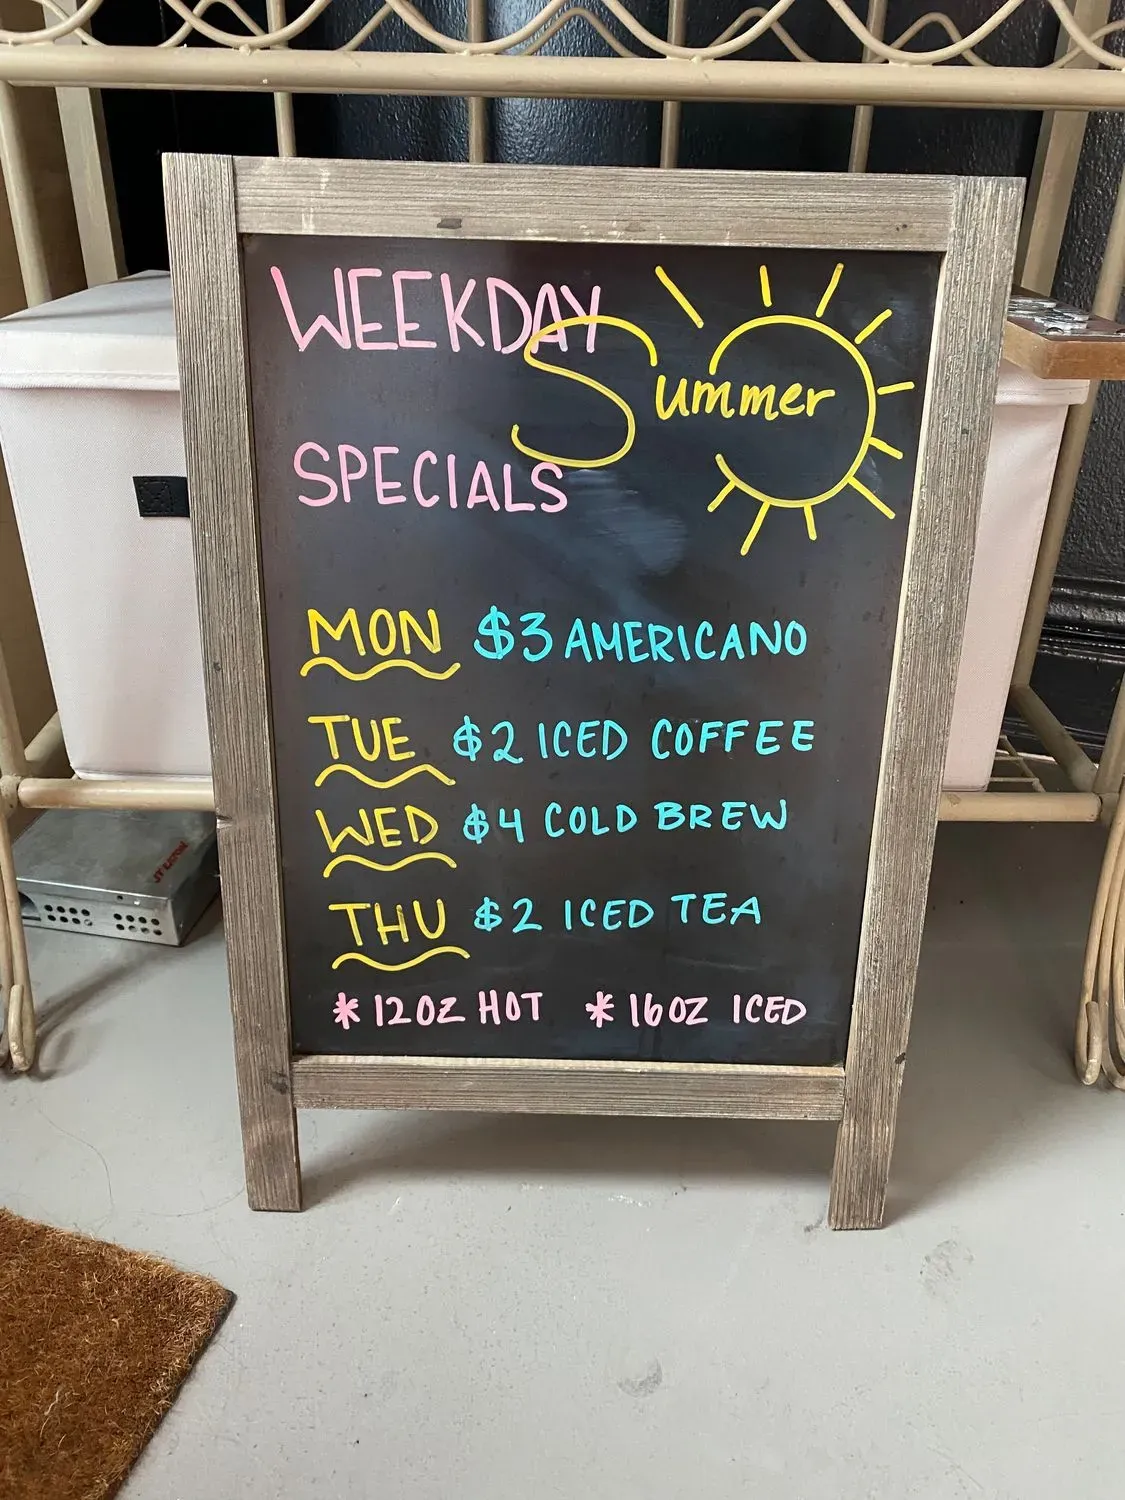 WEEKDAY
Summer
SPECIALS
MON $3 AMERICANO
TUE $2 ICED COFFEE
WED $4 COLD BREW
THU $2 ICED TEA
* 12OZ HOT * 16OZ ICED